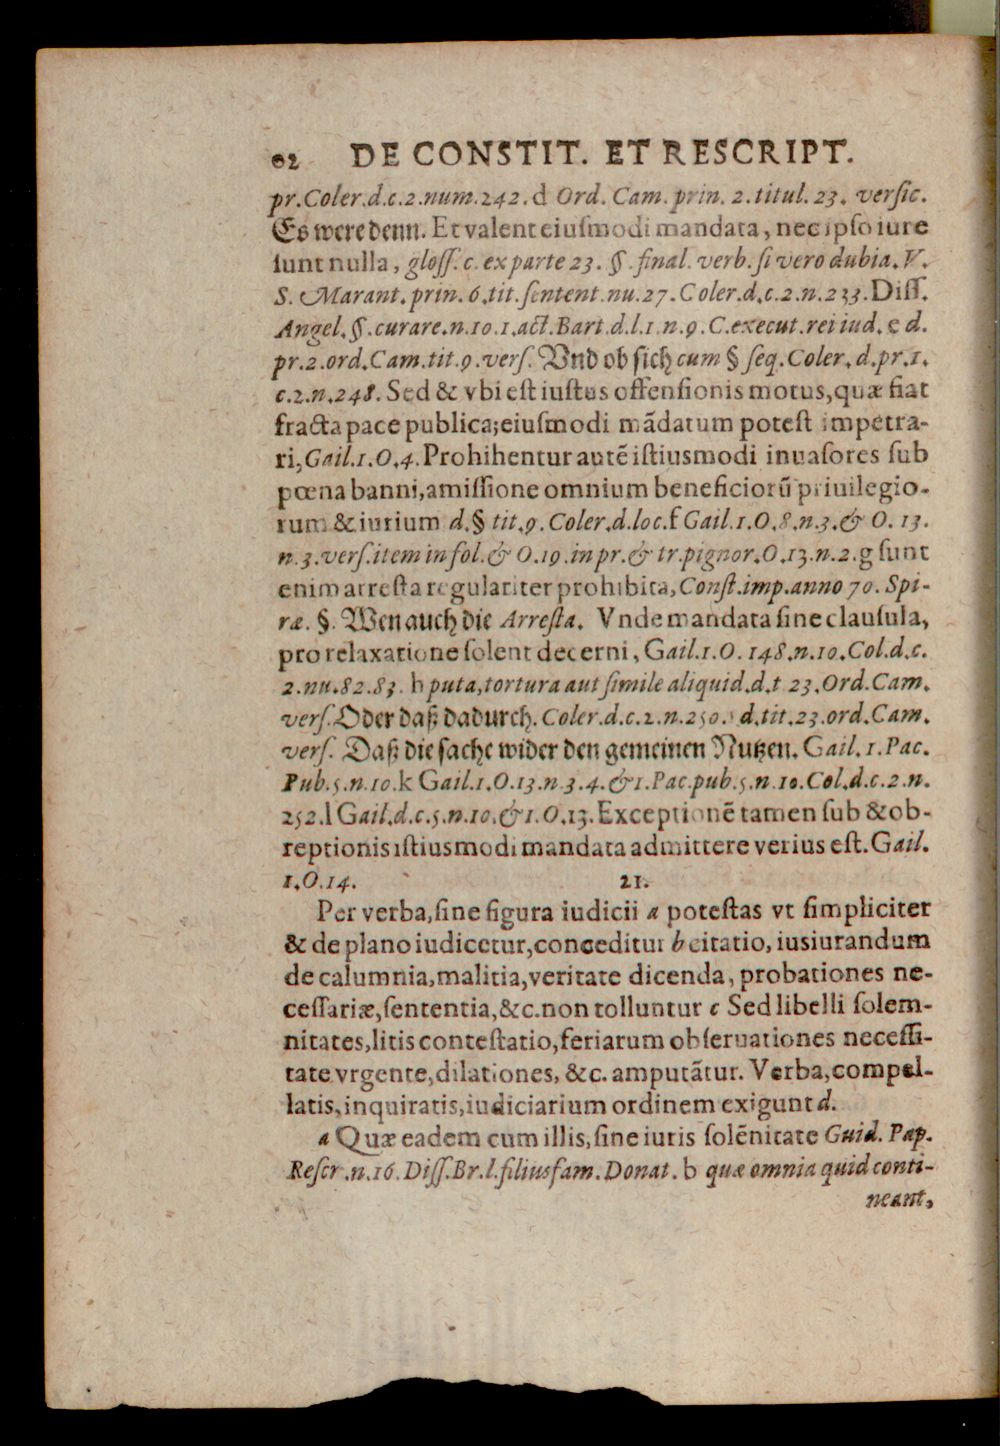 62 DE CONSTIT. ET RESCRIPT.
pr.Coler.d.c.2.num.242.d Ord. Cam. prin. 2.titul.23. verſic.
Es were denn. Et valent eiuſmodi mandata, nec ipſo iure
ſunt nulla, gloſſ. c. ex parte 23. §. final. verb. ſi vero dubia. V.
S. Marant. prin. 6.tit.ſentent.nu.27.Coler.d.c.2.n.233.Diſſ.
Angel.§.curare.n.10.1.act.Bart.d.l.1.n.9.C.execut.rei iud. e d.
pr.2.ord.Cam.tit.9.verſ. Vnd ob ſich cum § ſeq.Coler.d.pr.1.
c.2.n.248. Sed & vbi eſt iuſtus offenſionis motus,quæ fiat
fracta pace publica;eiuſmodi mãdatum poteſt impetra-
ri,Gail.1.O.4.Prohihentur autẽ iſtiusmodi inuaſores ſub
pœna banni,amiſſione omnium beneficiorũ priuilegio-
rum & iurium d.§ tit.9. Coler.d.loc.f Gail.1.O.8.n.3.& O. 13.
n.3.verſ.item in fol.& O.19.in pr.& tr.pignor.O.13.n.2.g ſunt
enim arreſta regulariter prohibita, Conſt.imp.anno 70. Spi-
ræ. §. Wen auch die Arreſta. Vnde mandata ſine clauſula,
pro relaxatione ſolent decerni, Gail.1.O. 148.n.10.Col.d.c.
2.nu.82.83. h puta,tortura aut ſimile aliquid.d.t 23.Ord.Cam.
verſ.Oder daß dadurch. Coler.d.c.2.n.250. d.tit.23.ord.Cam.
verſ. Daß die ſache wider den gemeinen Nutzen. Gail. 1. Pac.
Pub.5.n.10.k Gail.1.O.13.n.3.4.&1.Pac.pub.5.n.10.Col.d.c.2.n.
252.l Gail.d.c.5.n.10.&1.O.13.Exceptionẽ tamen ſub & ob-
reptionis iſtiusmodi mandata admittere verius eſt.Gail.
1.O.14. 21.
Per verba,ſine figura iudicii a poteſtas vt ſimpliciter
& de plano iudicetur,conceditur b citatio, iusiurandum
de calumnia,malitia,veritate dicenda, probationes ne-
ceſſariæ,ſententia,&c.non tolluntur c Sed libelli ſolem-
nitates,litis conteſtatio,feriarum obſeruationes neceſſi-
tate vrgente,dilationes, &c. amputãtur. Verba,compel-
latis,inquiratis,iudiciarium ordinem exigunt d.
a Quæ eadem cum illis,ſine iuris ſolẽnitate Guid. Pap.
Reſcr.n.16.Diſſ.Br.l.filiusfam.Donat. b quæ omnia quid conti-
neant,